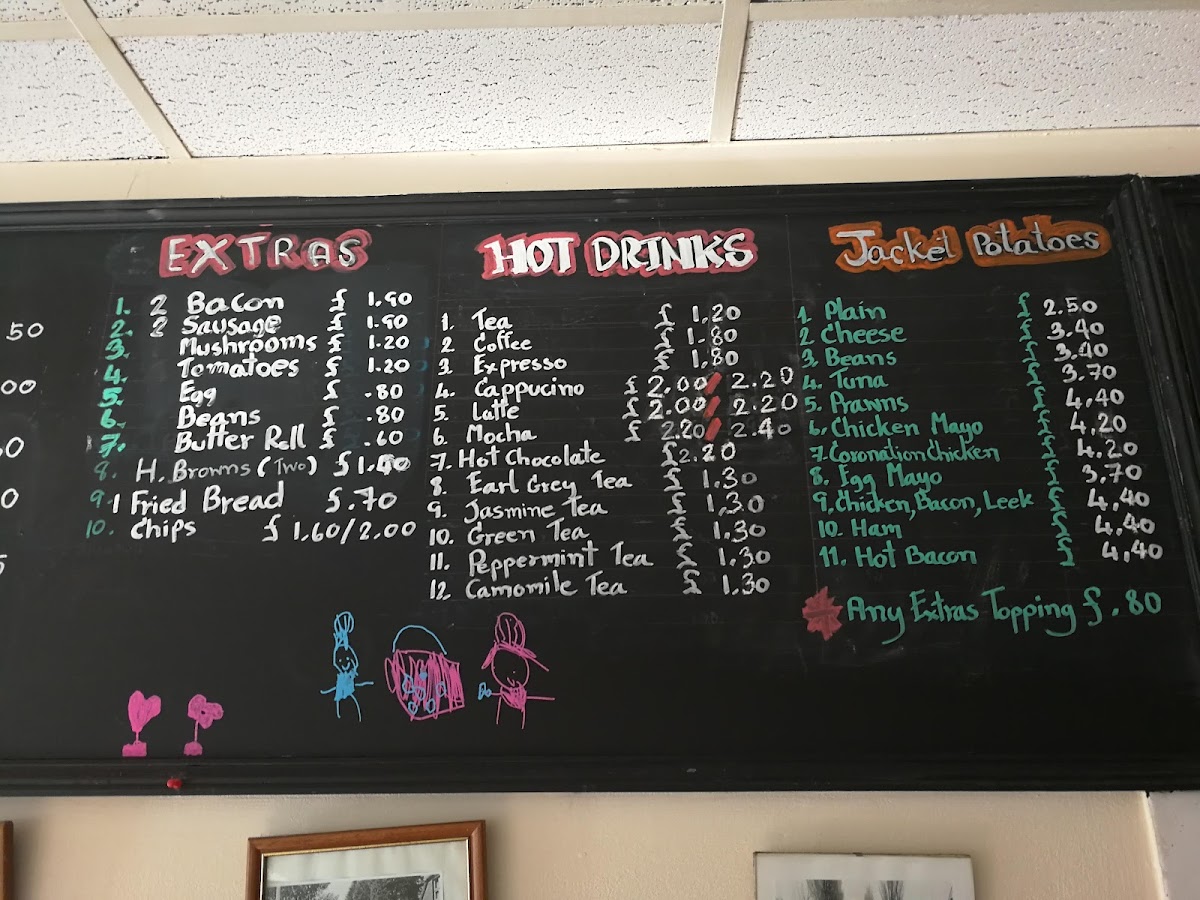 50
00
0
0
5
EXTRAS
1. 2 Bacon £ 1.90
2. 2 Sausage £ 1.90
3. Mushrooms £ 1.20
4. Tomatoes £ 1.20
5. Egg £ .80
6. Beans £ .80
7. Butter Roll £ .60
8. H. Browns (Two) £ 1.40
9. 1 Fried Bread £.70
10. Chips £ 1.60/2.00
HOT DRINKS
1. Tea £ 1.20
2 Coffee £ 1.80
3. Expresso £ 1.80
4. Cappucino £ 2.00 / 2.20
5. Latte £ 2.00 / 2.20
6. Mocha £ 2.20 / 2.40
7. Hot Chocolate £2.20
8. Earl Grey Tea £ 1.30
9. Jasmine Tea £ 1.30
10. Green Tea £ 1.30
11. Peppermint Tea £ 1.30
12. Camomile Tea £ 1.30
Jacket Potatoes
1. Plain £ 2.50
2 Cheese £ 3.40
3. Beans £ 3.40
4. Tuna £ 3.70
5. Prawns £ 4.40
6. Chicken Mayo £ 4.20
7. Coronation Chicken £ 4.20
8. Egg Mayo £ 3.70
9. Chicken, Bacon, Leek £ 4.40
10. Ham £ 4.40
11. Hot Bacon £ 4.40
Any Extras Topping £.80